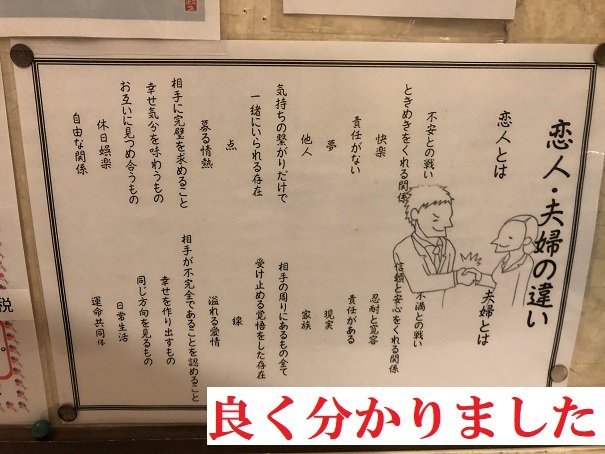 恋人・夫婦の違い
恋人とは
不安との戦い
ときめきをくれる関係
快楽
責任がない
夢
他人
気持ちの繋がりだけで
一緒にいられる存在
点
募る情熱
相手に完璧を求めること
幸せ気分を味わうもの
お互いに見つめ合うもの
休日娯楽
自由な関係
夫婦とは
不満との戦い
信頼と安心をくれる関係
忍耐と寛容
責任がある
現実
家族
相手の周りにあるもの全て
受け止める覚悟をした存在
線
溢れる愛情
相手が不完全であることを認めること
幸せを作り出すもの
同じ方向を見るもの
日常生活
運命共同体
税
良く分かりました